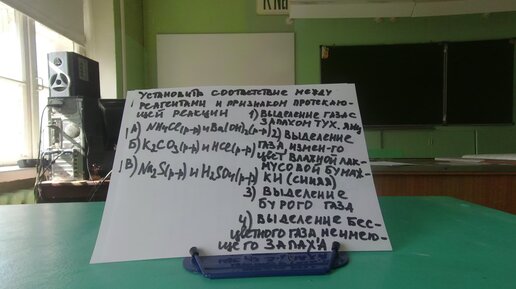 УСТАНОВИТЬ СООТВЕТСТВИЕ МЕЖДУ
РЕАГЕНТАМИ И ПРИЗНАКОМ ПРОТЕКАЮ-
ЩЕЙ РЕАКЦИИ
А) NH4Cl(р-р) и Ba(OH)2(р-р)
Б) K2CO3(р-р) и HCl(р-р)
В) Na2S(р-р) и H2SO4(р-р)
1) ВЫДЕЛЕНИЕ ГАЗА С
ЗАПАХОМ ТУХ. ЯИЦ
2) ВЫДЕЛЕНИЕ
ГАЗА, ИЗМЕН-ГО
ЦВЕТ ВЛАЖНОЙ ЛАК-
МУСОВОЙ БУМАЖ-
КИ (СИНЯЯ)
3) ВЫДЕЛЕНИЕ
БУРОГО ГАЗА
4) ВЫДЕЛЕНИЕ БЕС-
ЦВЕТНОГО ГАЗА, НЕ ИМЕЮ-
ЩЕГО ЗАПАХА